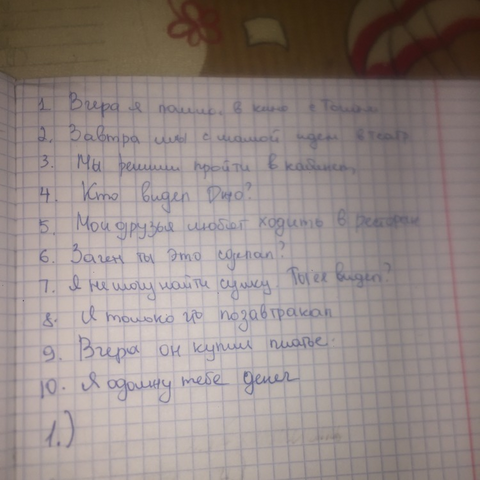 1. Вчера я пошла в кино с Томом
2. Завтра мы с мамой идем в театр
3. Мы решили пройти в кабинет
4. Кто видел Джо?
5. Мои друзья любят ходить в ресторан
6. Зачем ты это сделал?
7. Я не могу найти сумку. Ты ее видел?
8. Я только что позавтракал
9. Вчера он купил платье.
10. Я одолжу тебе денег
1.)